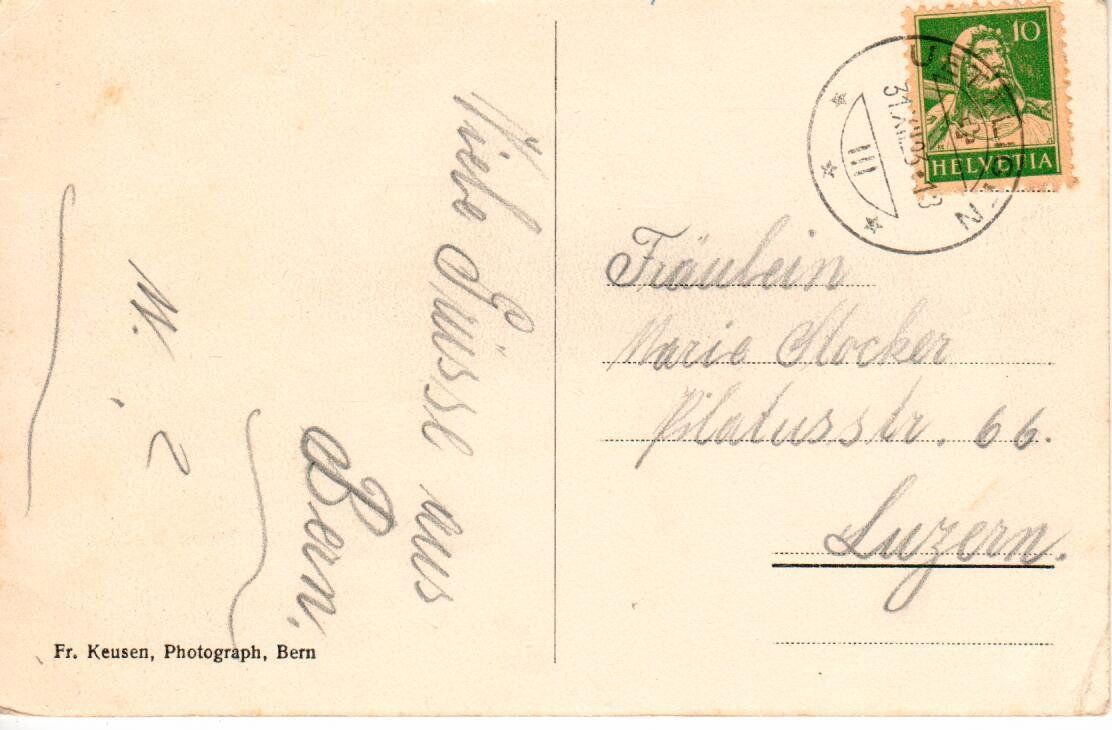 Viele Grüsse aus
Bern.
W. e
Fr. Keusen, Photograph, Bern
10
HELVETIA
III
Fräulein
Marie Stocker
Pilatusstr. 66.
Luzern.